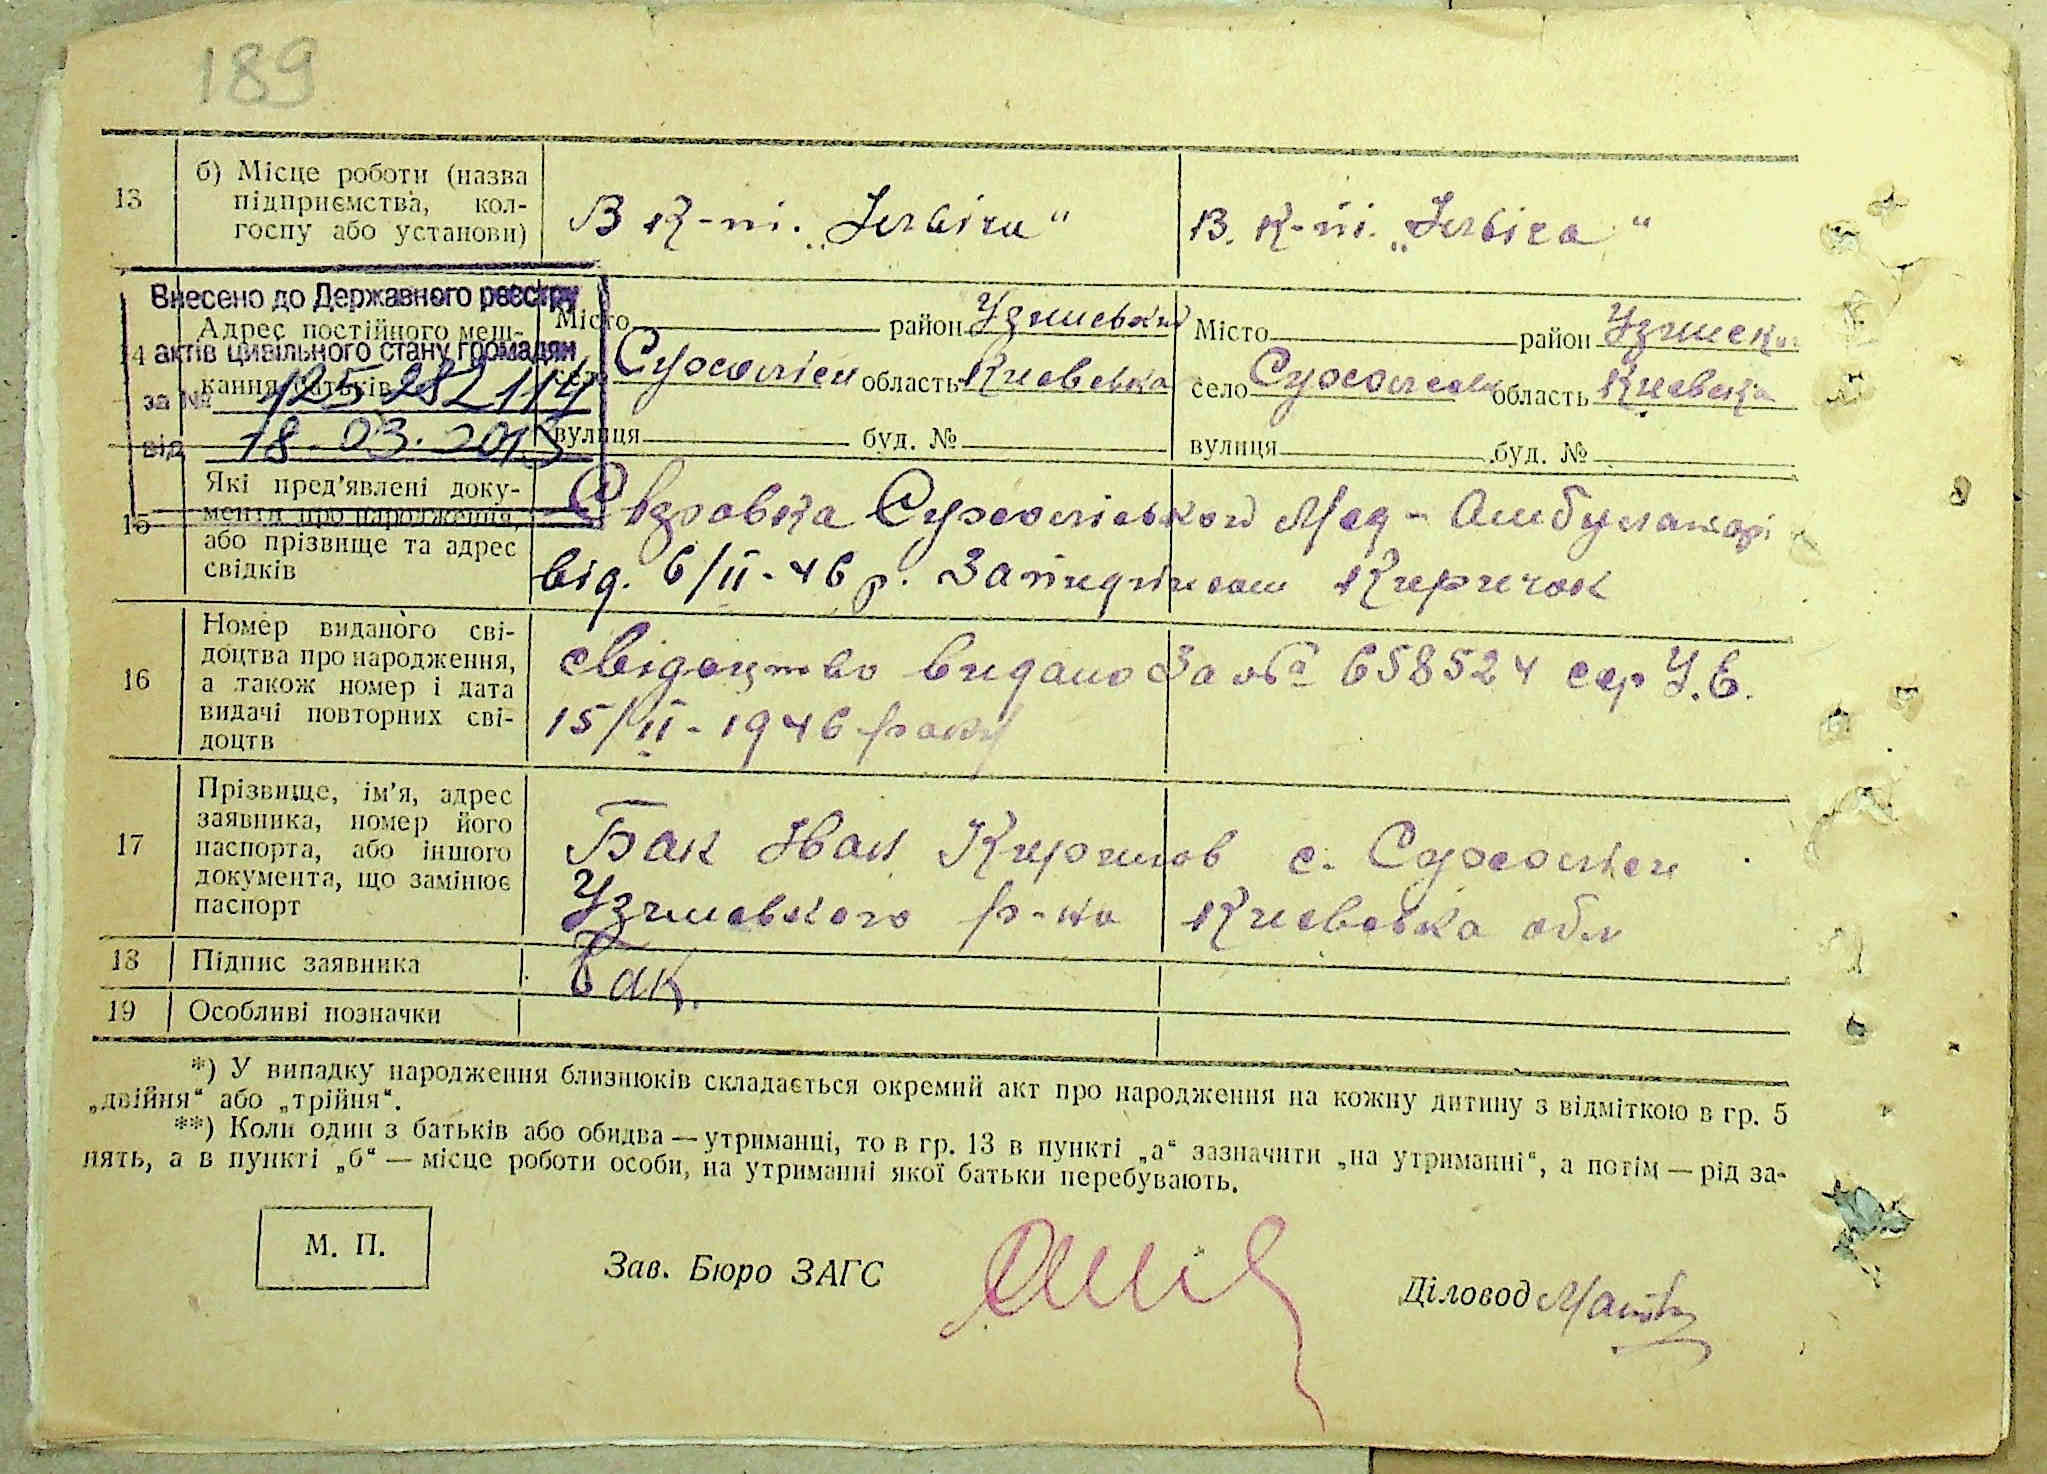 189
13 б) Місце роботи (назва
підприємства, кол-
госпу або установи)
В к-пі. В. к-пі.
Внесено до Державного реєстру
актів цивільного стану громадян
за № 125 282 114
від 18-03-2013
14 Адрес постійного меш-
кання батьків
Місто район Місто район
село область Києвська село область Києвська
вулиця буд. № вулиця буд. №
15 Які пред'явлені доку-
менти про народження,
або прізвище та адрес
свідків
Мед-Амбулаторі
від. 6/II-46 р. За підписом Киричок
16 Номер виданого сві-
доцтва про народження,
а також номер і дата
видачі повторних сві-
доцтв
свідоцтво видано За № 658524 сер У.Б.
15/II-1946 року
17 Прізвище, ім'я, адрес
заявника, номер його
паспорта, або іншого
документа, що замінює
паспорт
Бак Иван Кирилов с.
р-на Києвська обл
18 Підпис заявника Бак.
19 Особливі позначки
*) У випадку народження близнюків складається окремий акт про народження на кожну дитину з відміткою в гр. 5
„двійня“ або „трійня“.
**) Коли один з батьків або обидва — утриманці, то в гр. 13 в пункті „а“ зазначити „на утриманні“, а потім — рід за-
нять, а в пункті „б“ — місце роботи особи, на утриманні якої батьки перебувають.
М. П.
Зав. Бюро ЗАГС
Діловод